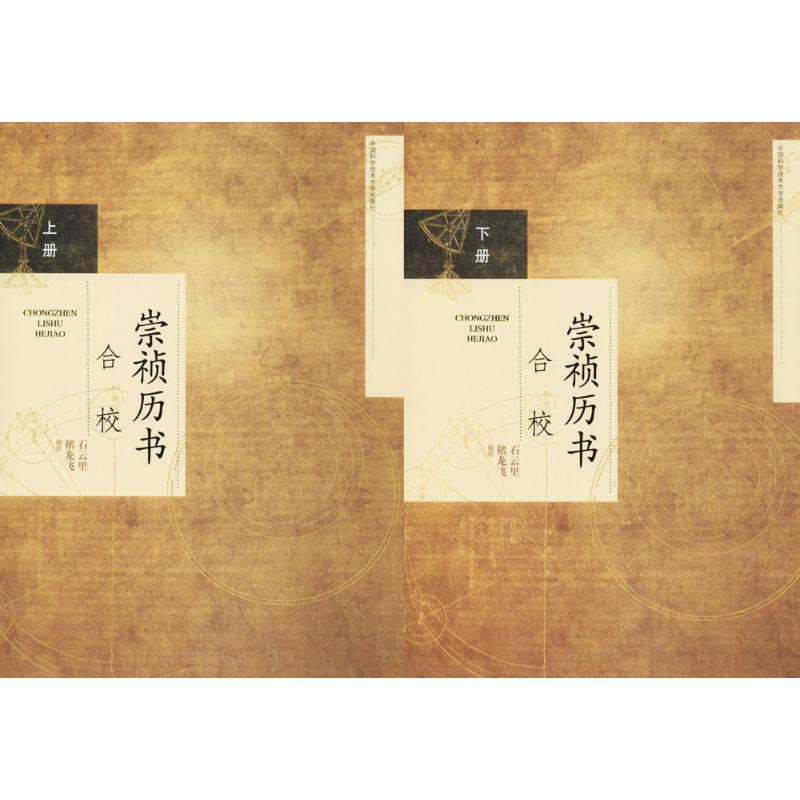 上册
CHONGZHEN
LISHU
HEJIAO
崇祯历书
合校
石云里
褚龙飞
校注
中国科学技术大学出版社
下册
CHONGZHEN
LISHU
HEJIAO
崇祯历书
合校
石云里
褚龙飞
校注
中国科学技术大学出版社